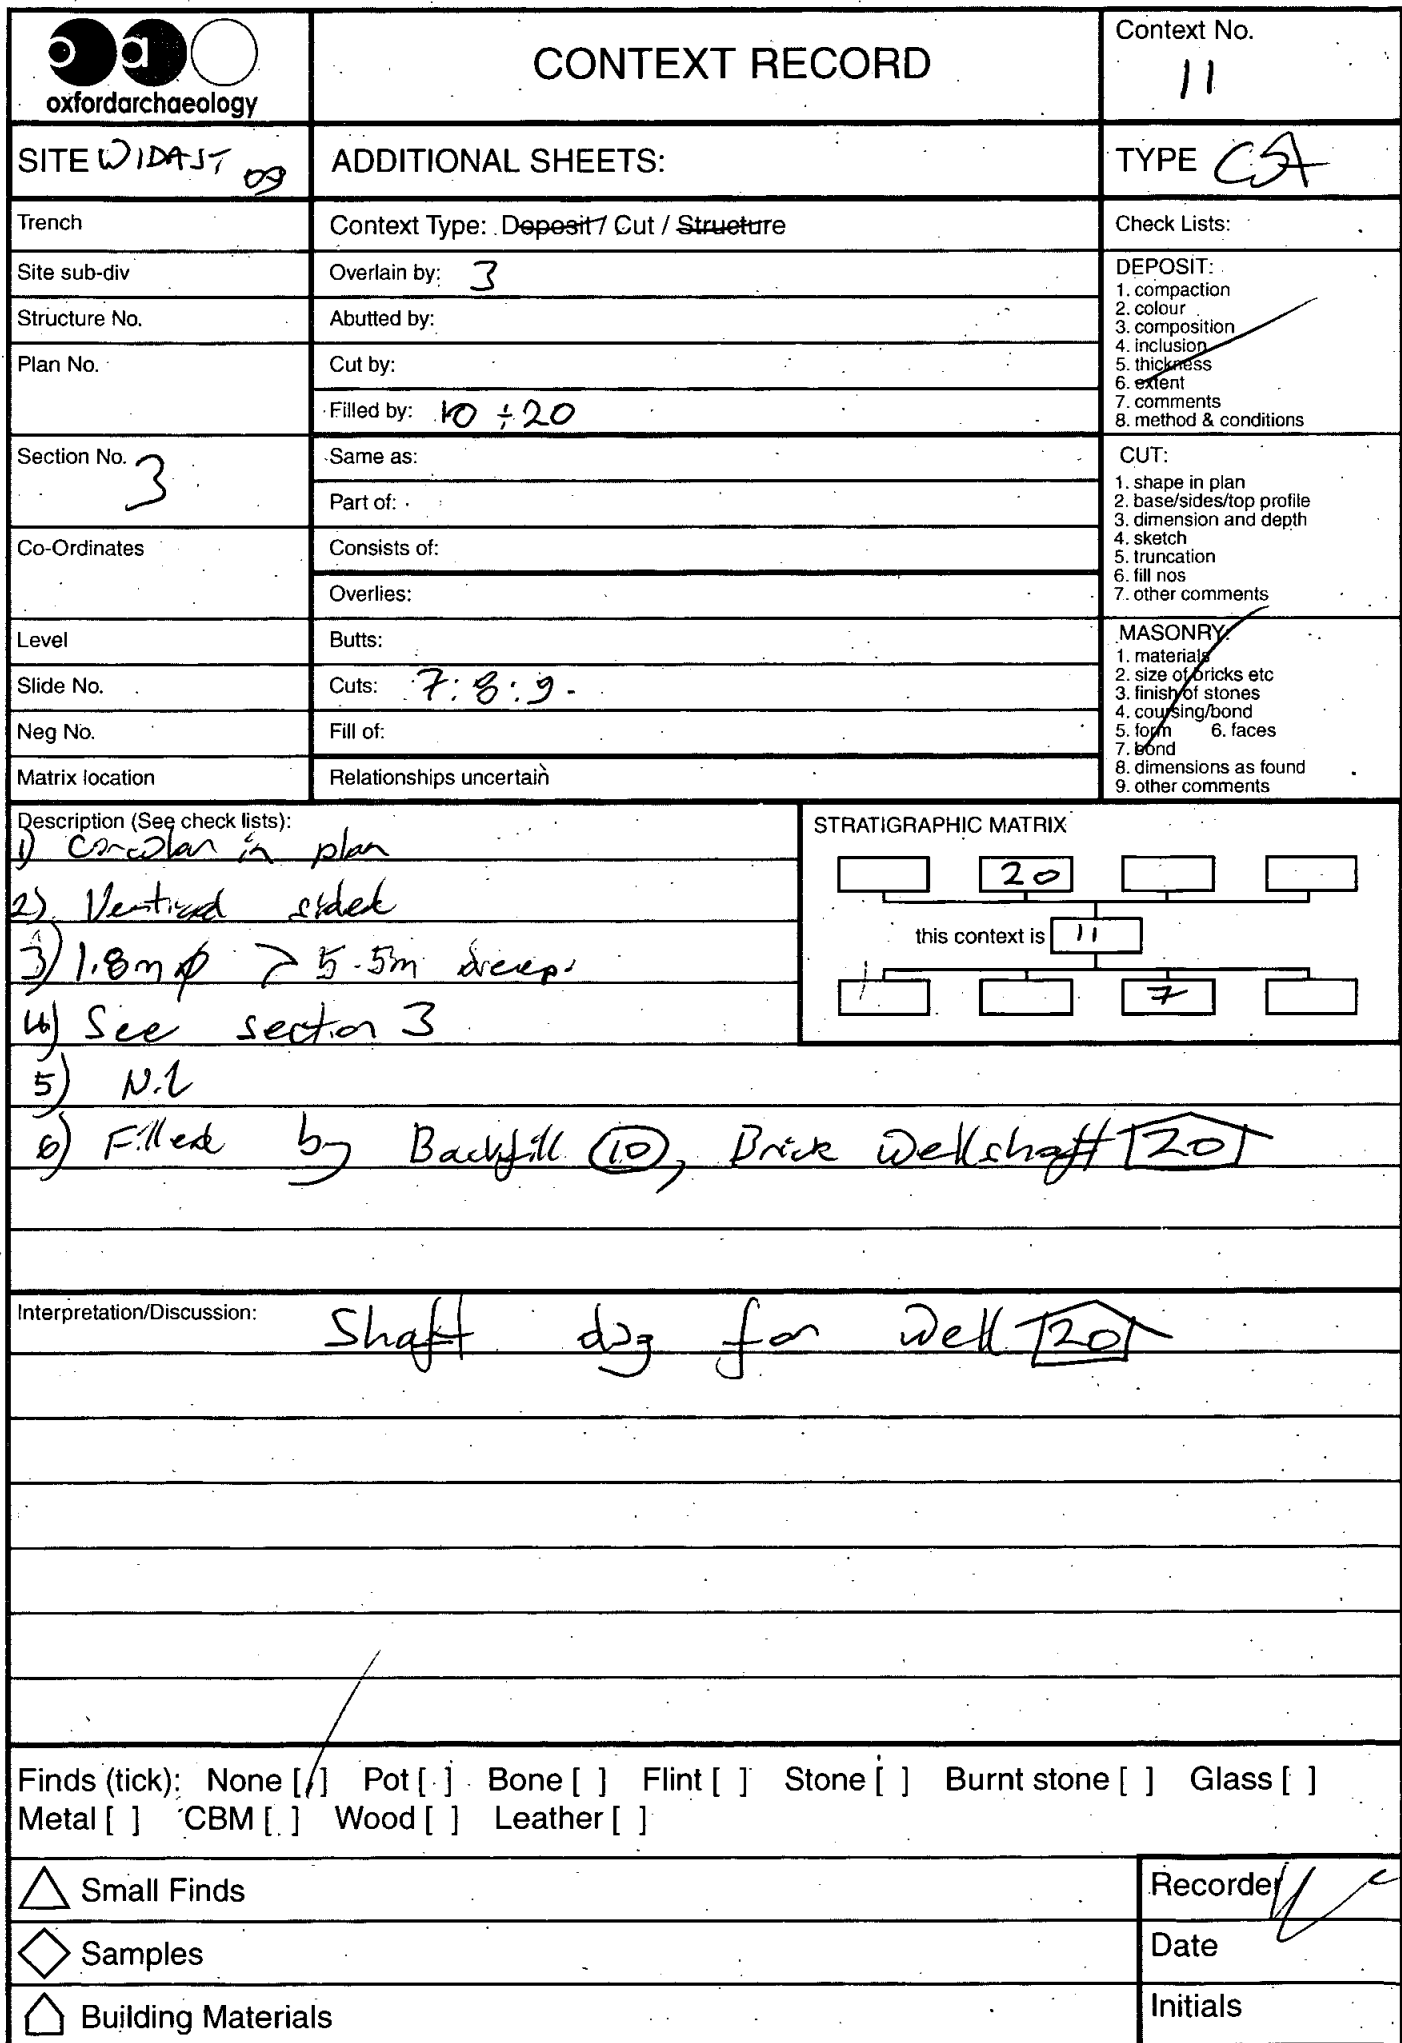 oxfordarchaeology
CONTEXT RECORD
Context No.
11
SITE WIDAST 09
ADDITIONAL SHEETS:
TYPE
Trench
Context Type: Deposit / Cut / Structure
Check Lists:
Site sub-div
Overlain by: 3
Structure No.
Abutted by:
Plan No.
Cut by:
Filled by: 10 : 20
Section No. 3
Same as:
Part of:
Co-Ordinates
Consists of:
Overlies:
Level
Butts:
Slide No.
Cuts: 7: 8: 9.
Neg No.
Fill of:
Matrix location
Relationships uncertain
DEPOSIT:
1. compaction
2. colour
3. composition
4. inclusion
5. thickness
6. extent
7. comments
8. method & conditions
CUT:
1. shape in plan
2. base/sides/top profile
3. dimension and depth
4. sketch
5. truncation
6. fill nos
7. other comments
MASONRY:
1. materials
2. size of bricks etc
3. finish of stones
4. coursing/bond
5. form 6. faces
7. bond
8. dimensions as found
9. other comments
Description (See check lists):
1) Circular in plan
2) Vertical sided
3) 1.8m ø > 5.5m deep.
4) See section 3
5) Nil
6) Filled by Backfill 10, Brick Wellshaft 20
STRATIGRAPHIC MATRIX
20
this context is 11
7
Interpretation/Discussion:
Shaft dug for well 20
Finds (tick): None [/] Pot [ ] Bone [ ] Flint [ ] Stone [ ] Burnt stone [ ] Glass [ ]
Metal [ ] CBM [ ] Wood [ ] Leather [ ]
Small Finds
Samples
Building Materials
Recorder
Date
Initials